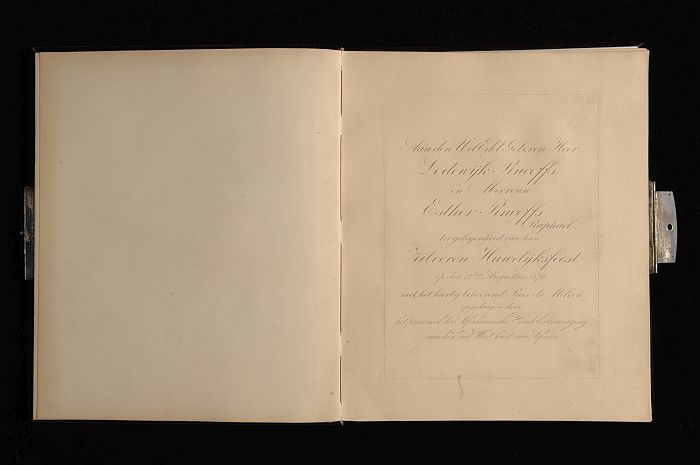 Aan den WelEdel Geboren Heer
Lodewijk Pincoffs
en Mevrouw
Esther Pincoffs
Raphael
ter gelegenheid van hun
Zilveren Huwelijksfeest
op den Augustus
met het hierby behoorend Pièce de Milieu
opgedragen door
het personeel der Afrikaansche Handelsvereeniging
van de Zuid West kust van Afrika